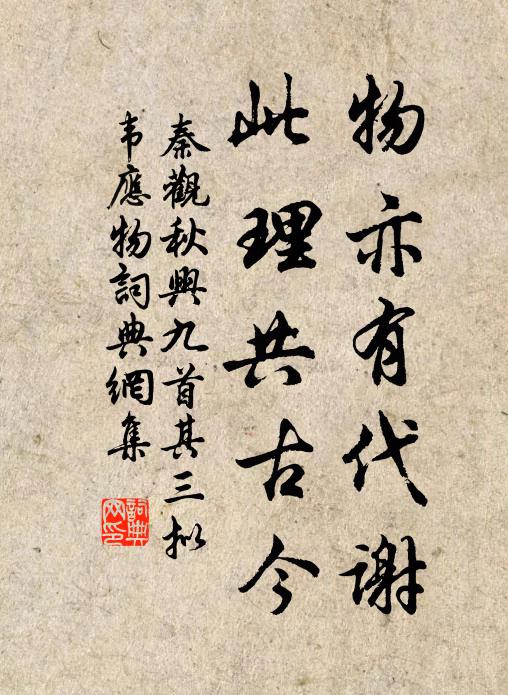 物亦有代謝
此理共古今
秦觀秋興九首其三拟
韦應物詞典網集
詞典
网印